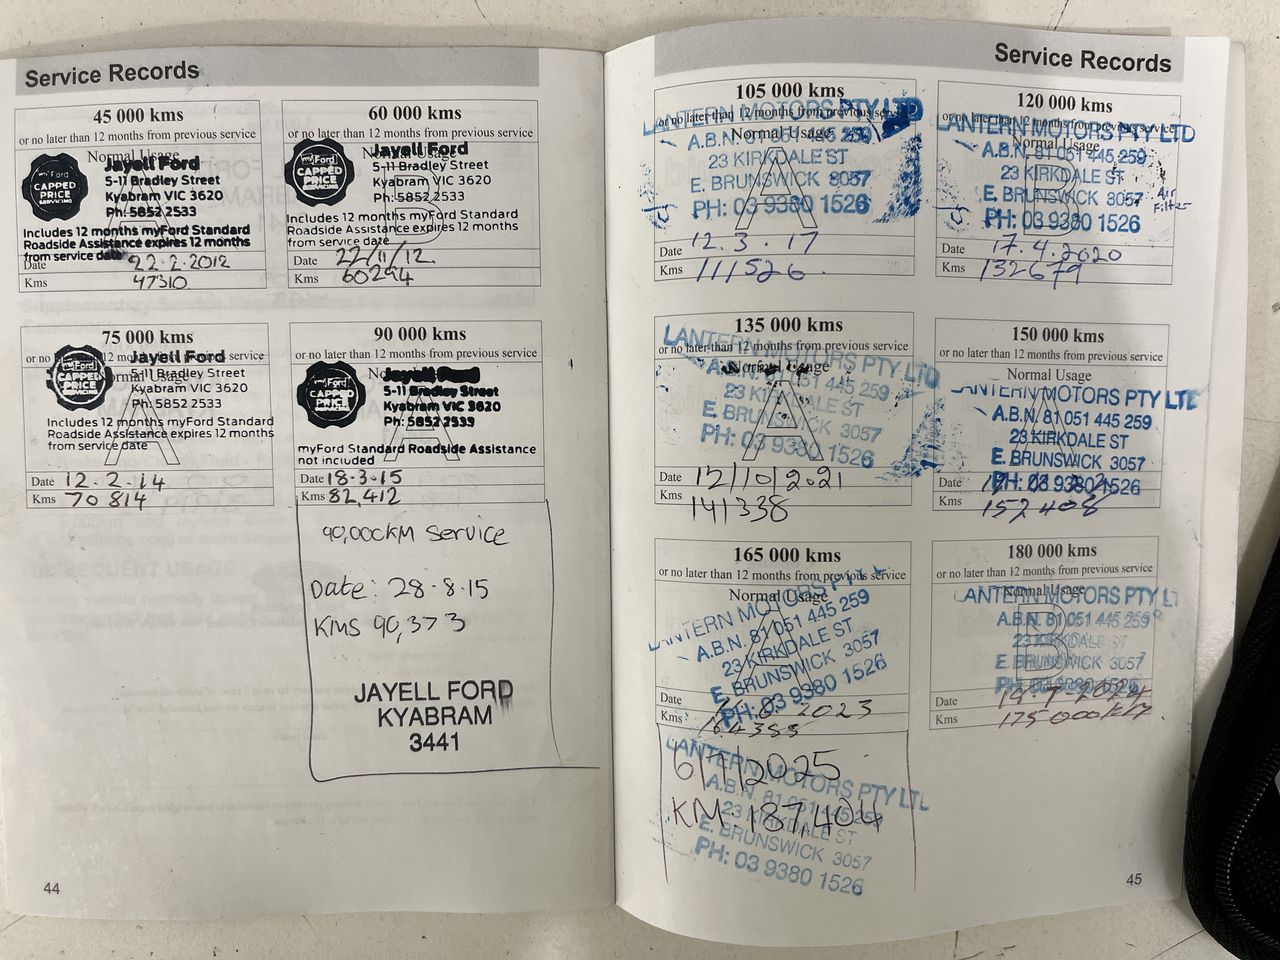 Service Records
45 000 kms
or no later than 12 months from previous service
Normal Usage
myFord
CAPPED
PRICE
SERVICING
Jayell Ford
5-11 Bradley Street
Kyabram VIC 3620
Ph: 5852 2533
Includes 12 months myFord Standard
Roadside Assistance expires 12 months
from service date
Date 22-2-2012
Kms 47310
60 000 kms
or no later than 12 months from previous service
Normal Usage
myFord
CAPPED
PRICE
SERVICING
Jayell Ford
5-11 Bradley Street
Kyabram VIC 3620
Ph: 5852 2533
Includes 12 months myFord Standard
Roadside Assistance expires 12 months
from service date
Date 22/11/12
Kms 60294
75 000 kms
or no later than 12 months from previous service
Normal Usage
myFord
CAPPED
PRICE
SERVICING
Jayell Ford
5-11 Bradley Street
Kyabram VIC 3620
Ph: 5852 2533
Includes 12 months myFord Standard
Roadside Assistance expires 12 months
from service date
Date 12-2-14
Kms 70814
90 000 kms
or no later than 12 months from previous service
myFord
CAPPED
PRICE
SERVICING
5-11 Bradley Street
Kyabram VIC 3620
Ph: 5852 2533
myFord Standard Roadside Assistance
not included
A
Date 18-3-15
Kms 82,412
90,000KM Service
Date: 28-8-15
KMS 90,373
JAYELL FORD
KYABRAM
3441
44
Service Records
105 000 kms
or no later than 12 months from previous service
Normal Usage
A
LANTERN MOTORS PTY LTD
A.B.N. 81 051 445 259
23 KIRKDALE ST
E. BRUNSWICK 3057
PH: 03 9380 1526
Date 12.3.17
Kms 111526
120 000 kms
or no later than 12 months from previous service
Normal Usage
LANTERN MOTORS PTY LTD
A.B.N. 81 051 445 259
23 KIRKDALE ST
E. BRUNSWICK 3057
PH: 03 9380 1526
Air
Filter
Date 17.4.2020
Kms 132679
135 000 kms
or no later than 12 months from previous service
Normal Usage
A
LANTERN MOTORS PTY LTD
A.B.N. 81 051 445 259
23 KIRKDALE ST
E. BRUNSWICK 3057
PH: 03 9380 1526
Date 12/10/2021
Kms 141338
150 000 kms
or no later than 12 months from previous service
Normal Usage
LANTERN MOTORS PTY LTD
A.B.N. 81 051 445 259
23 KIRKDALE ST
E. BRUNSWICK 3057
PH: 03 9380 1526
Date
Kms 152408
165 000 kms
or no later than 12 months from previous service
Normal Usage
A
LANTERN MOTORS PTY L
A.B.N. 81 051 445 259
23 KIRKDALE ST
E. BRUNSWICK 3057
PH: 03 9380 1526
Date 2023
Kms
180 000 kms
or no later than 12 months from previous service
Normal Usage
B
LANTERN MOTORS PTY LT
A.B.N. 81 051 445 259
23 KIRKDALE ST
E. BRUNSWICK 3057
PH: 03 9380 1526
Date 19-7-2024
Kms 175000KM
6/1/2025
KM 187,404
LANTERN MOTORS PTY LT
A.B.N. 81 051 445 259
23 KIRKDALE ST
E. BRUNSWICK 3057
PH: 03 9380 1526
45